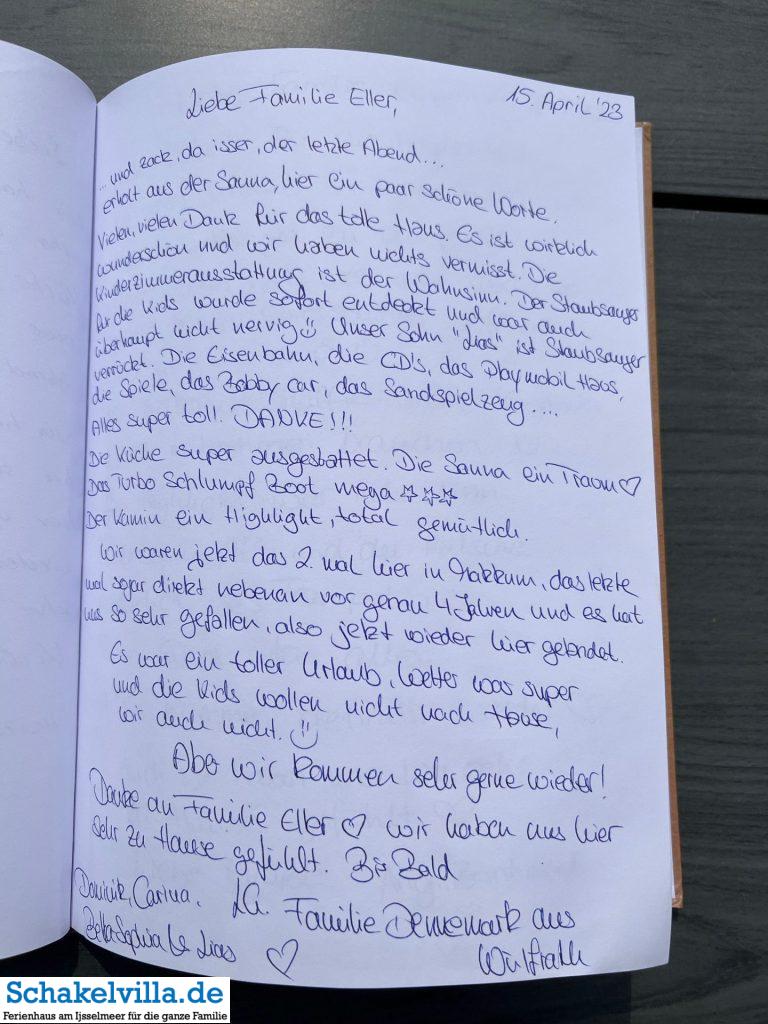 Liebe Familie Eller,
15. April '23
... und zack, da isser, der letzte Abend...
erholt aus der Sauna, hier ein paar schöne Worte.
Vielen, vielen Dank für das tolle Haus. Es ist wirklich
wunderschön und wir haben nichts vermisst. Die
Kinderzimmerausstattung ist der Wahnsinn. Der Staubsauger
für die Kids wurde sofort entdeckt und war auch
überhaupt nicht nervig☺ Unser Sohn "Lias" ist Staubsauger
verrückt. Die Eisenbahn, die CD's, das Playmobil Haus,
die Spiele, das Bobby car, das Sandspielzeug....
Alles super toll. DANKE!!!
Die Küche super ausgestattet. Die Sauna ein Traum♡
Das Turbo Schlumpf Boot mega ☆☆☆
Der Kamin ein Highlight, total gemütlich.
Wir waren jetzt das 2. mal hier in Makkum, das letzte
mal sogar direkt nebenan vor genau 4 Jahren und es hat
uns so sehr gefallen, also jetzt wieder hier gelandet.
Es war ein toller Urlaub, Wetter war super
und die Kids wollen nicht nach Hause,
wir auch nicht. ☺
Aber wir kommen sehr gerne wieder!
Danke an Familie Eller ♡ wir haben uns hier
sehr zu Hause gefühlt. Bis Bald
Dominik, Carina. LG. Familie Dennemark aus
& Lias ♡ Wülfrath
Schakelvilla.de
Ferienhaus am Ijsselmeer für die ganze Familie